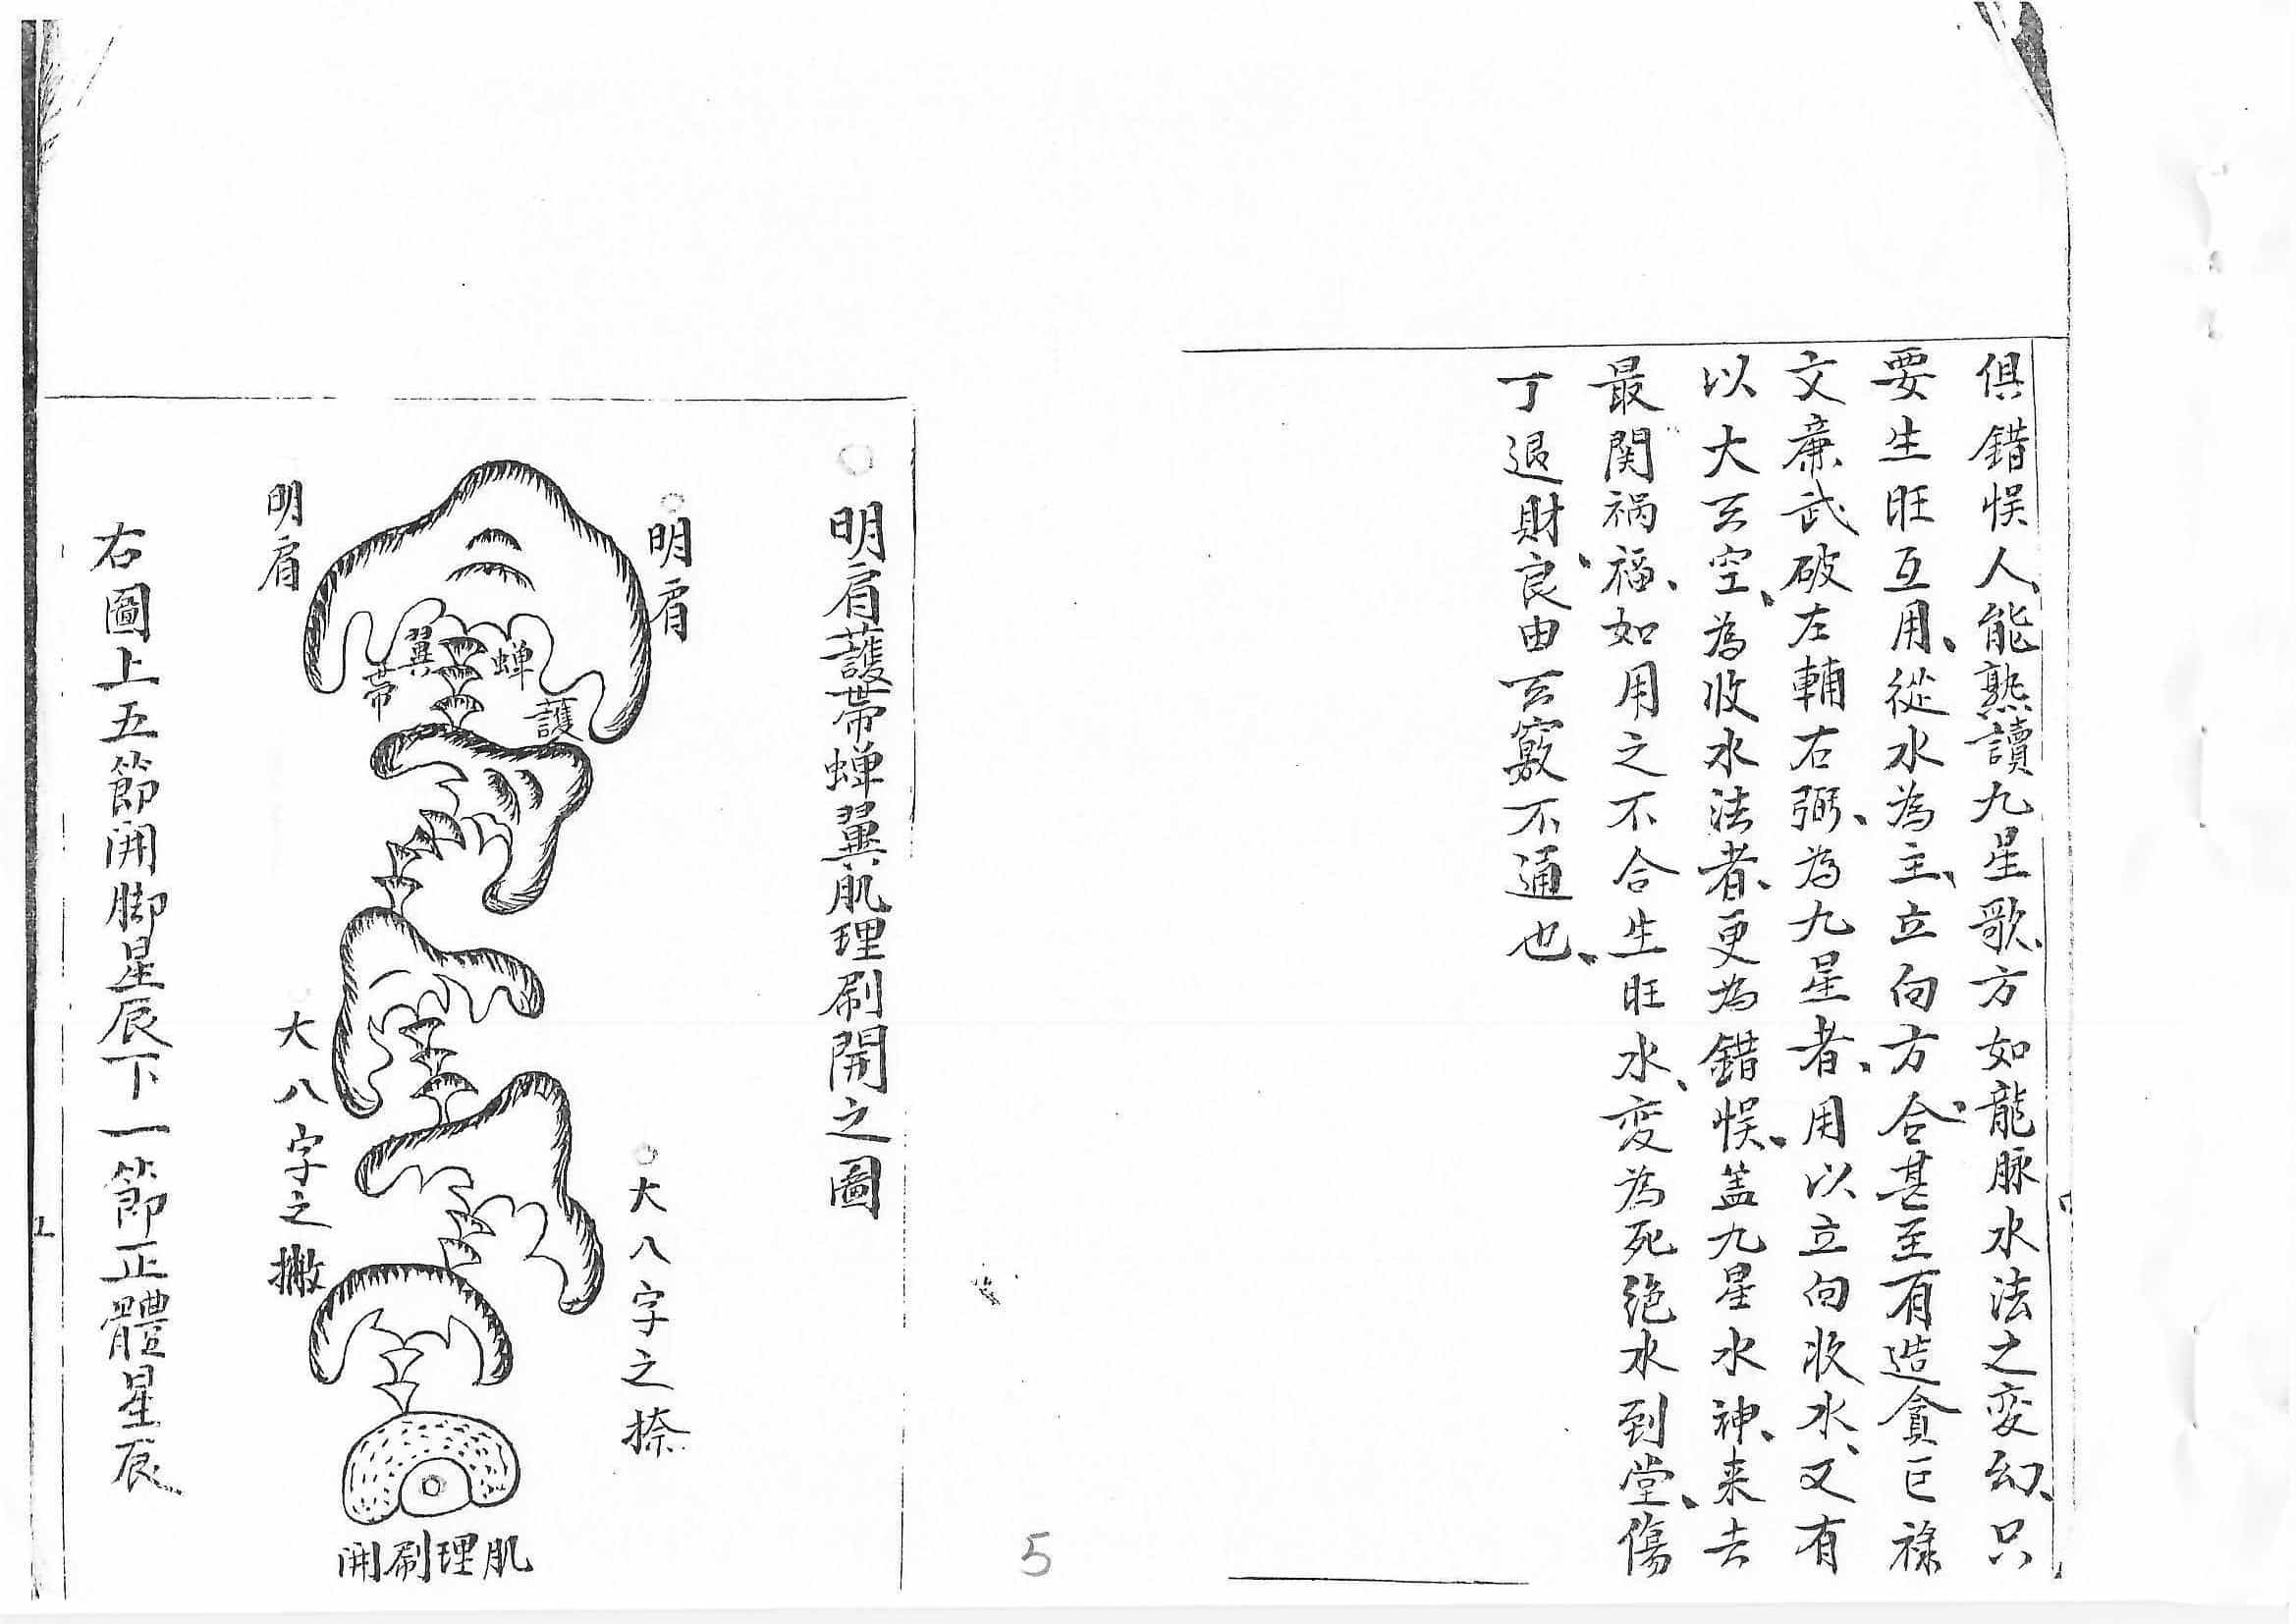 俱錯悮人、能熟讀九星歌、方如龍脉水法之変幻、只
要生旺互用、從水為主、立向方合、甚至有造貪巨祿
文廉武破左輔右弼、為九星者、用以立向收水、又有
以大玄空、為收水法者、更為錯悮、盖九星水神、来去
最関禍福、如用之不合生旺水、変為死絶水到堂、傷
丁退財、良由玄竅不通也、
5
明肩護帶蟬翼肌理刷開之圖
明肩
明肩
蟬翼
護帶
大八字之捺
大八字之撇
肌理刷開
右圖上五節開脚星辰下一節正體星辰